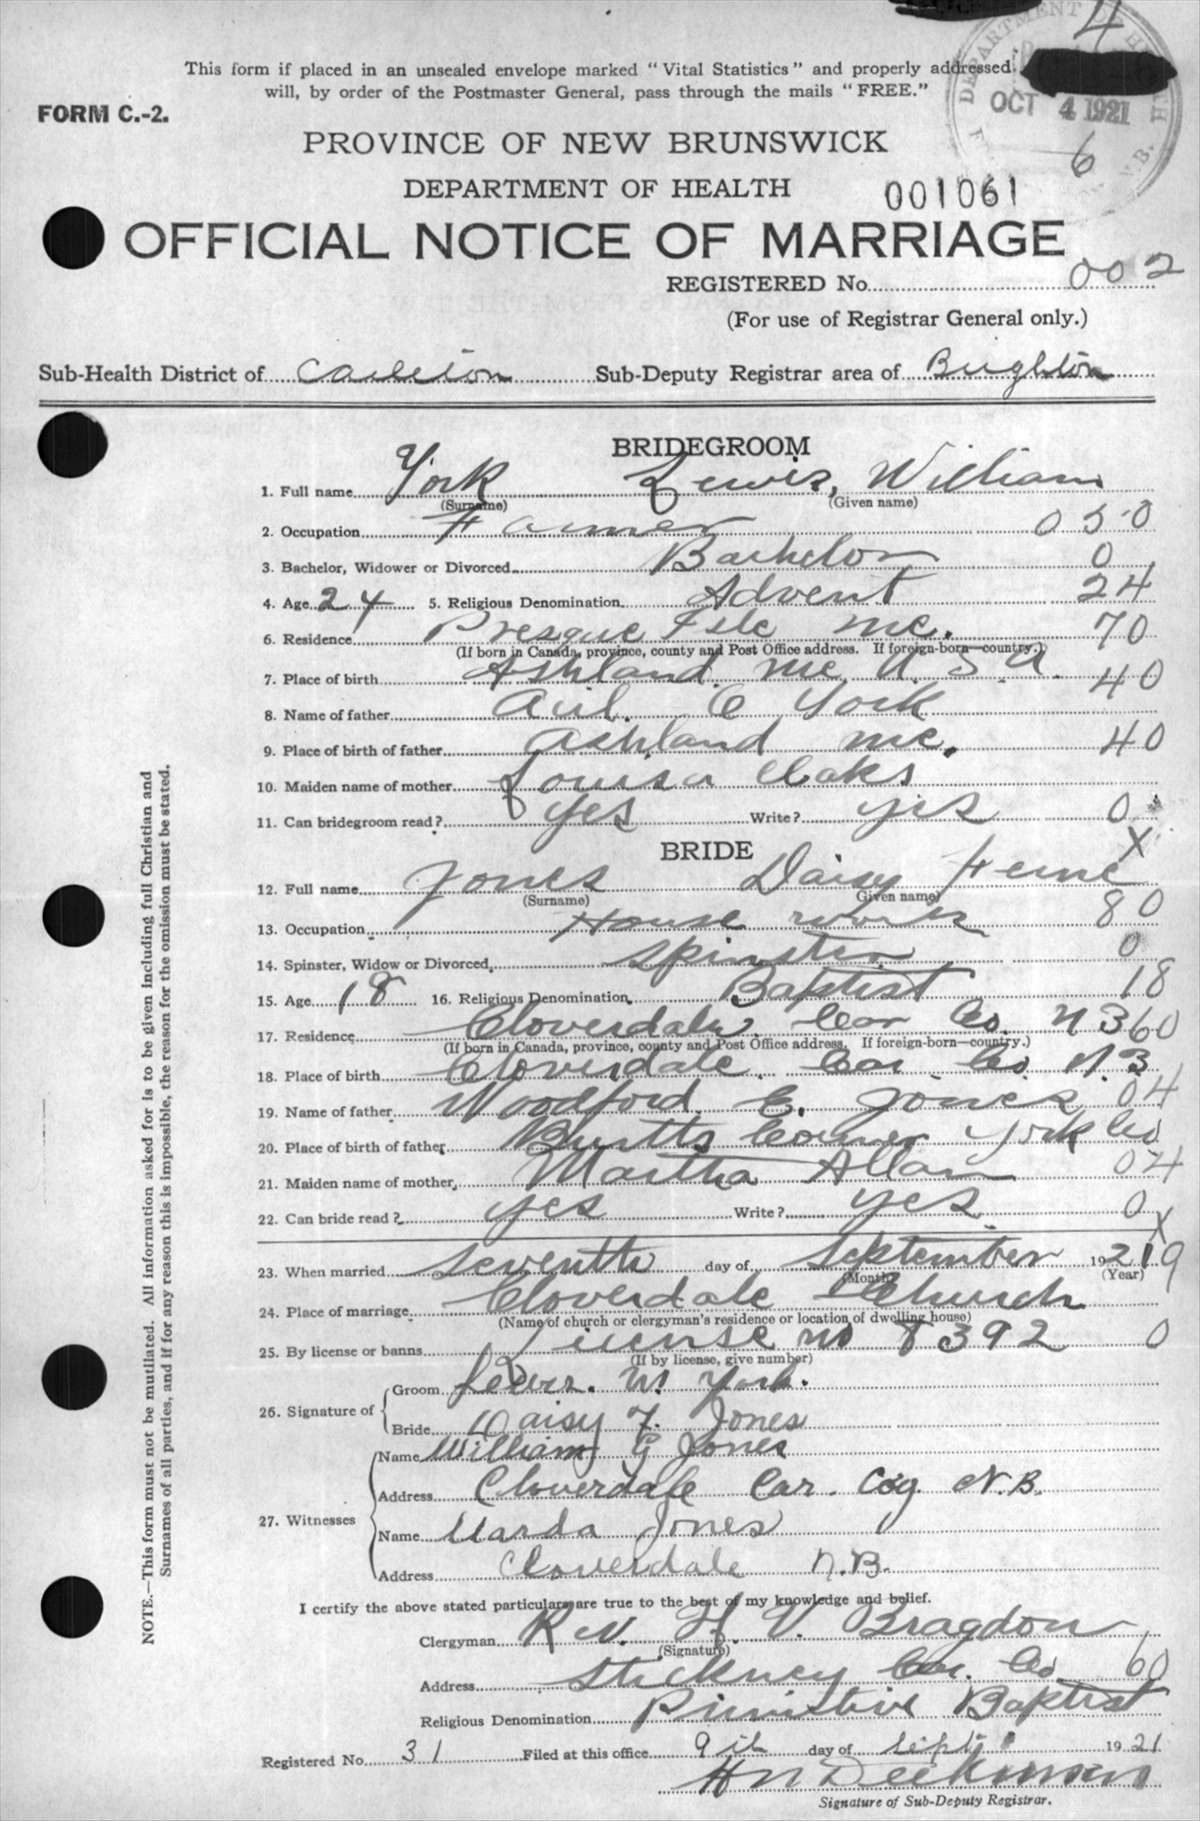 4
This form if placed in an unsealed envelope marked "Vital Statistics" and properly addressed
will, by order of the Postmaster General, pass through the mails "FREE."
DEPARTMENT OF
OCT 4 1921
N.B.
6
FORM C.-2.
PROVINCE OF NEW BRUNSWICK
DEPARTMENT OF HEALTH
001061
OFFICIAL NOTICE OF MARRIAGE
REGISTERED No. 002
(For use of Registrar General only.)
Sub-Health District of Carleton Sub-Deputy Registrar area of Brighton
BRIDEGROOM
1. Full name York Lewis, William
(Surname) (Given name)
2. Occupation Farmer 050
3. Bachelor, Widower or Divorced Bachelor 0
4. Age 24 5. Religious Denomination Advent 24
6. Residence Presque Isle Me. 70
(If born in Canada, province, county and Post Office address. If foreign-born—country.)
7. Place of birth Ashland Me U.S.A. 40
8. Name of father C York
9. Place of birth of father Ashland Me. 40
10. Maiden name of mother Louisa Oaks
11. Can bridegroom read? yes Write? yes 0
X
BRIDE
12. Full name Jones Daisy Ferne
(Surname) (Given name)
13. Occupation House work 80
14. Spinster, Widow or Divorced Spinster 0
15. Age 18 16. Religious Denomination Baptist 18
17. Residence Cloverdale Car Co. N B 60
(If born in Canada, province, county and Post Office address. If foreign-born—country.)
18. Place of birth Cloverdale Car Co. N.B
19. Name of father Woodford E. Jones 04
20. Place of birth of father Burtts Corner York Co
21. Maiden name of mother Martha Allan 04
22. Can bride read? yes Write? yes 0
X
23. When married seventh day of September 1921 9
(Month) (Year)
24. Place of marriage Cloverdale Church
(Name of church or clergyman's residence or location of dwelling house)
25. By license or banns License no 8392 0
(If by license, give number)
26. Signature of Groom Lewis. W. York.
Bride Daisy F. Jones
27. Witnesses Name William G Jones
Address Cloverdale Car. Coy N.B.
Name Marda Jones
Address Cloverdale N.B.
I certify the above stated particulars are true to the best of my knowledge and belief.
Clergyman Rev. H. V. Bragdon
(Signature)
Address Stickney Car. Co 60
Religious Denomination Primitive Baptist
Registered No. 31 Filed at this office 9th day of Sept 1921
H N Dickinson
Signature of Sub-Deputy Registrar.
NOTE.—This form must not be mutilated. All information asked for is to be given including full Christian and
Surnames of all parties, and if for any reason this is impossible, the reason for the omission must be stated.